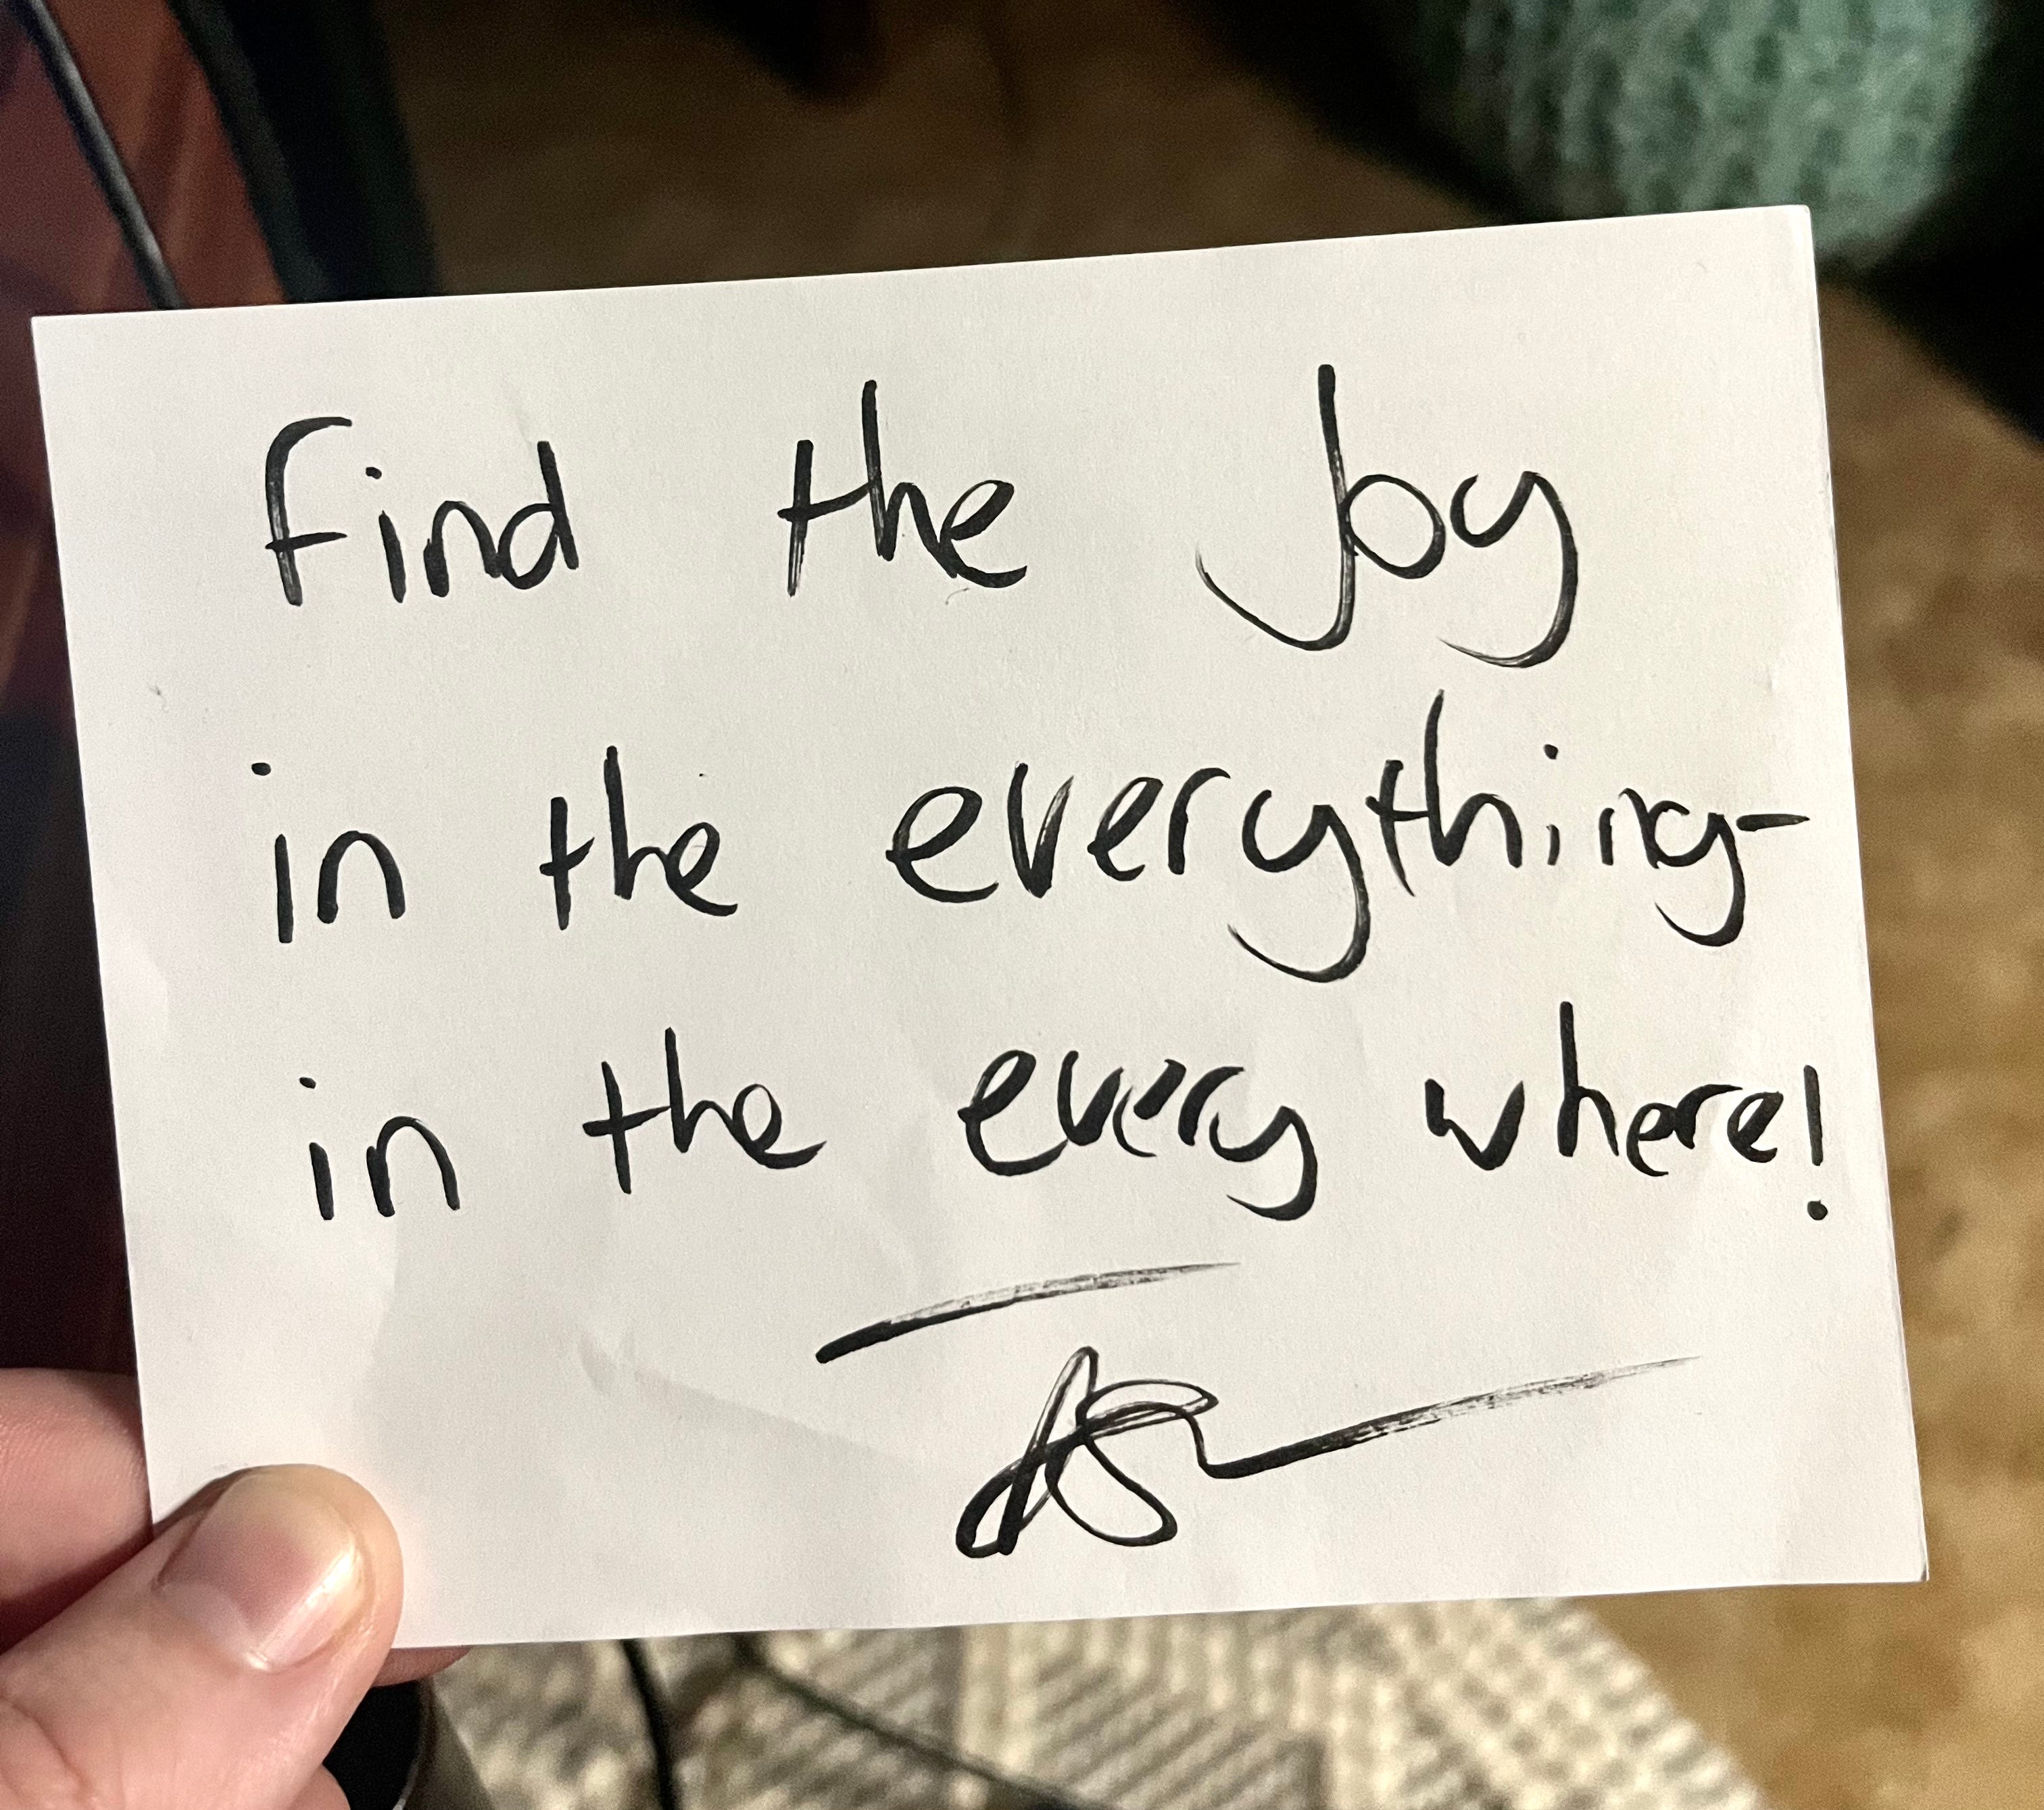 Find the Joy
in the everything-
in the every where!